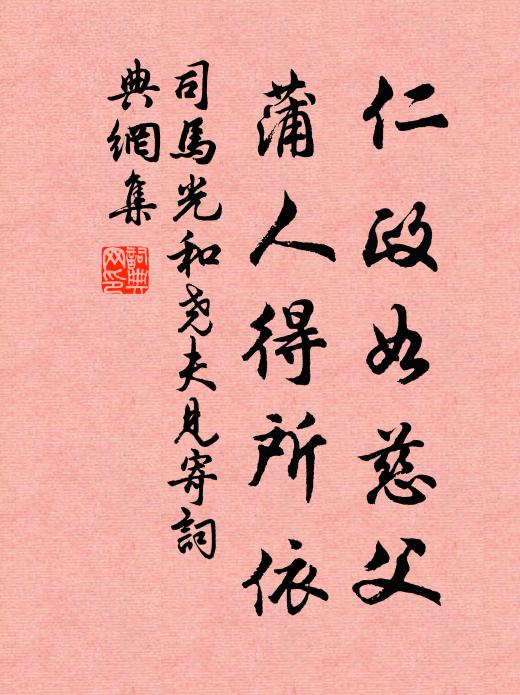 仁政如慈父
蒲人得所依
司馬光和堯夫見寄詞
典網集
詞典
网印